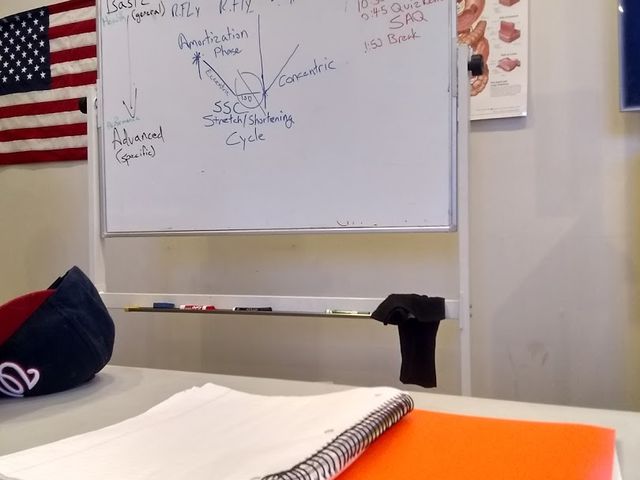 Basic
Healthy (general)
R.Fly
R.Fly
10:3
0:45 Quiz Review
SAQ
1:50 Break
Amortization
Phase
Eccentric
ISO
Concentric
SSC
Stretch/Shortening
Cycle
Advanced
(specific)